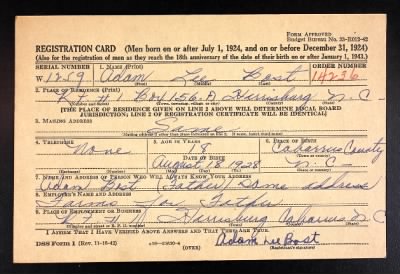 FORM APPROVED
Budget Bureau No. 33-R012-42
REGISTRATION CARD (Men born on or after July 1, 1924, and on or before December 31, 1924)
(Also for the registration of men as they reach the 18th anniversary of the date of their birth on or after January 1, 1943.)
SERIAL NUMBER 1. NAME (Print) ORDER NUMBER
W 1259 Adam Lee Bost 14236
2. PLACE OF RESIDENCE (Print)
R F # 1 Box 156 A Harrisburg N C
[THE PLACE OF RESIDENCE GIVEN ON LINE 2 ABOVE WILL DETERMINE LOCAL BOARD
JURISDICTION; LINE 2 OF REGISTRATION CERTIFICATE WILL BE IDENTICAL]
3. MAILING ADDRESS
Same
4. TELEPHONE 5. AGE IN YEARS 6. PLACE OF BIRTH
none 18 Cabarrus County
DATE OF BIRTH
August 18 1928 N. C.
7. NAME AND ADDRESS OF PERSON WHO WILL ALWAYS KNOW YOUR ADDRESS
Adam Bost (Father) Same address
8. EMPLOYER'S NAME AND ADDRESS
Farms for Father
9. PLACE OF EMPLOYMENT OR BUSINESS
Harrisburg Cabarrus N C
I AFFIRM THAT I HAVE VERIFIED ABOVE ANSWERS AND THAT THEY ARE TRUE.
DSS Form 1 (Rev. 11-16-42) (OVER) Adam Lee Bost
(Registrant's signature)